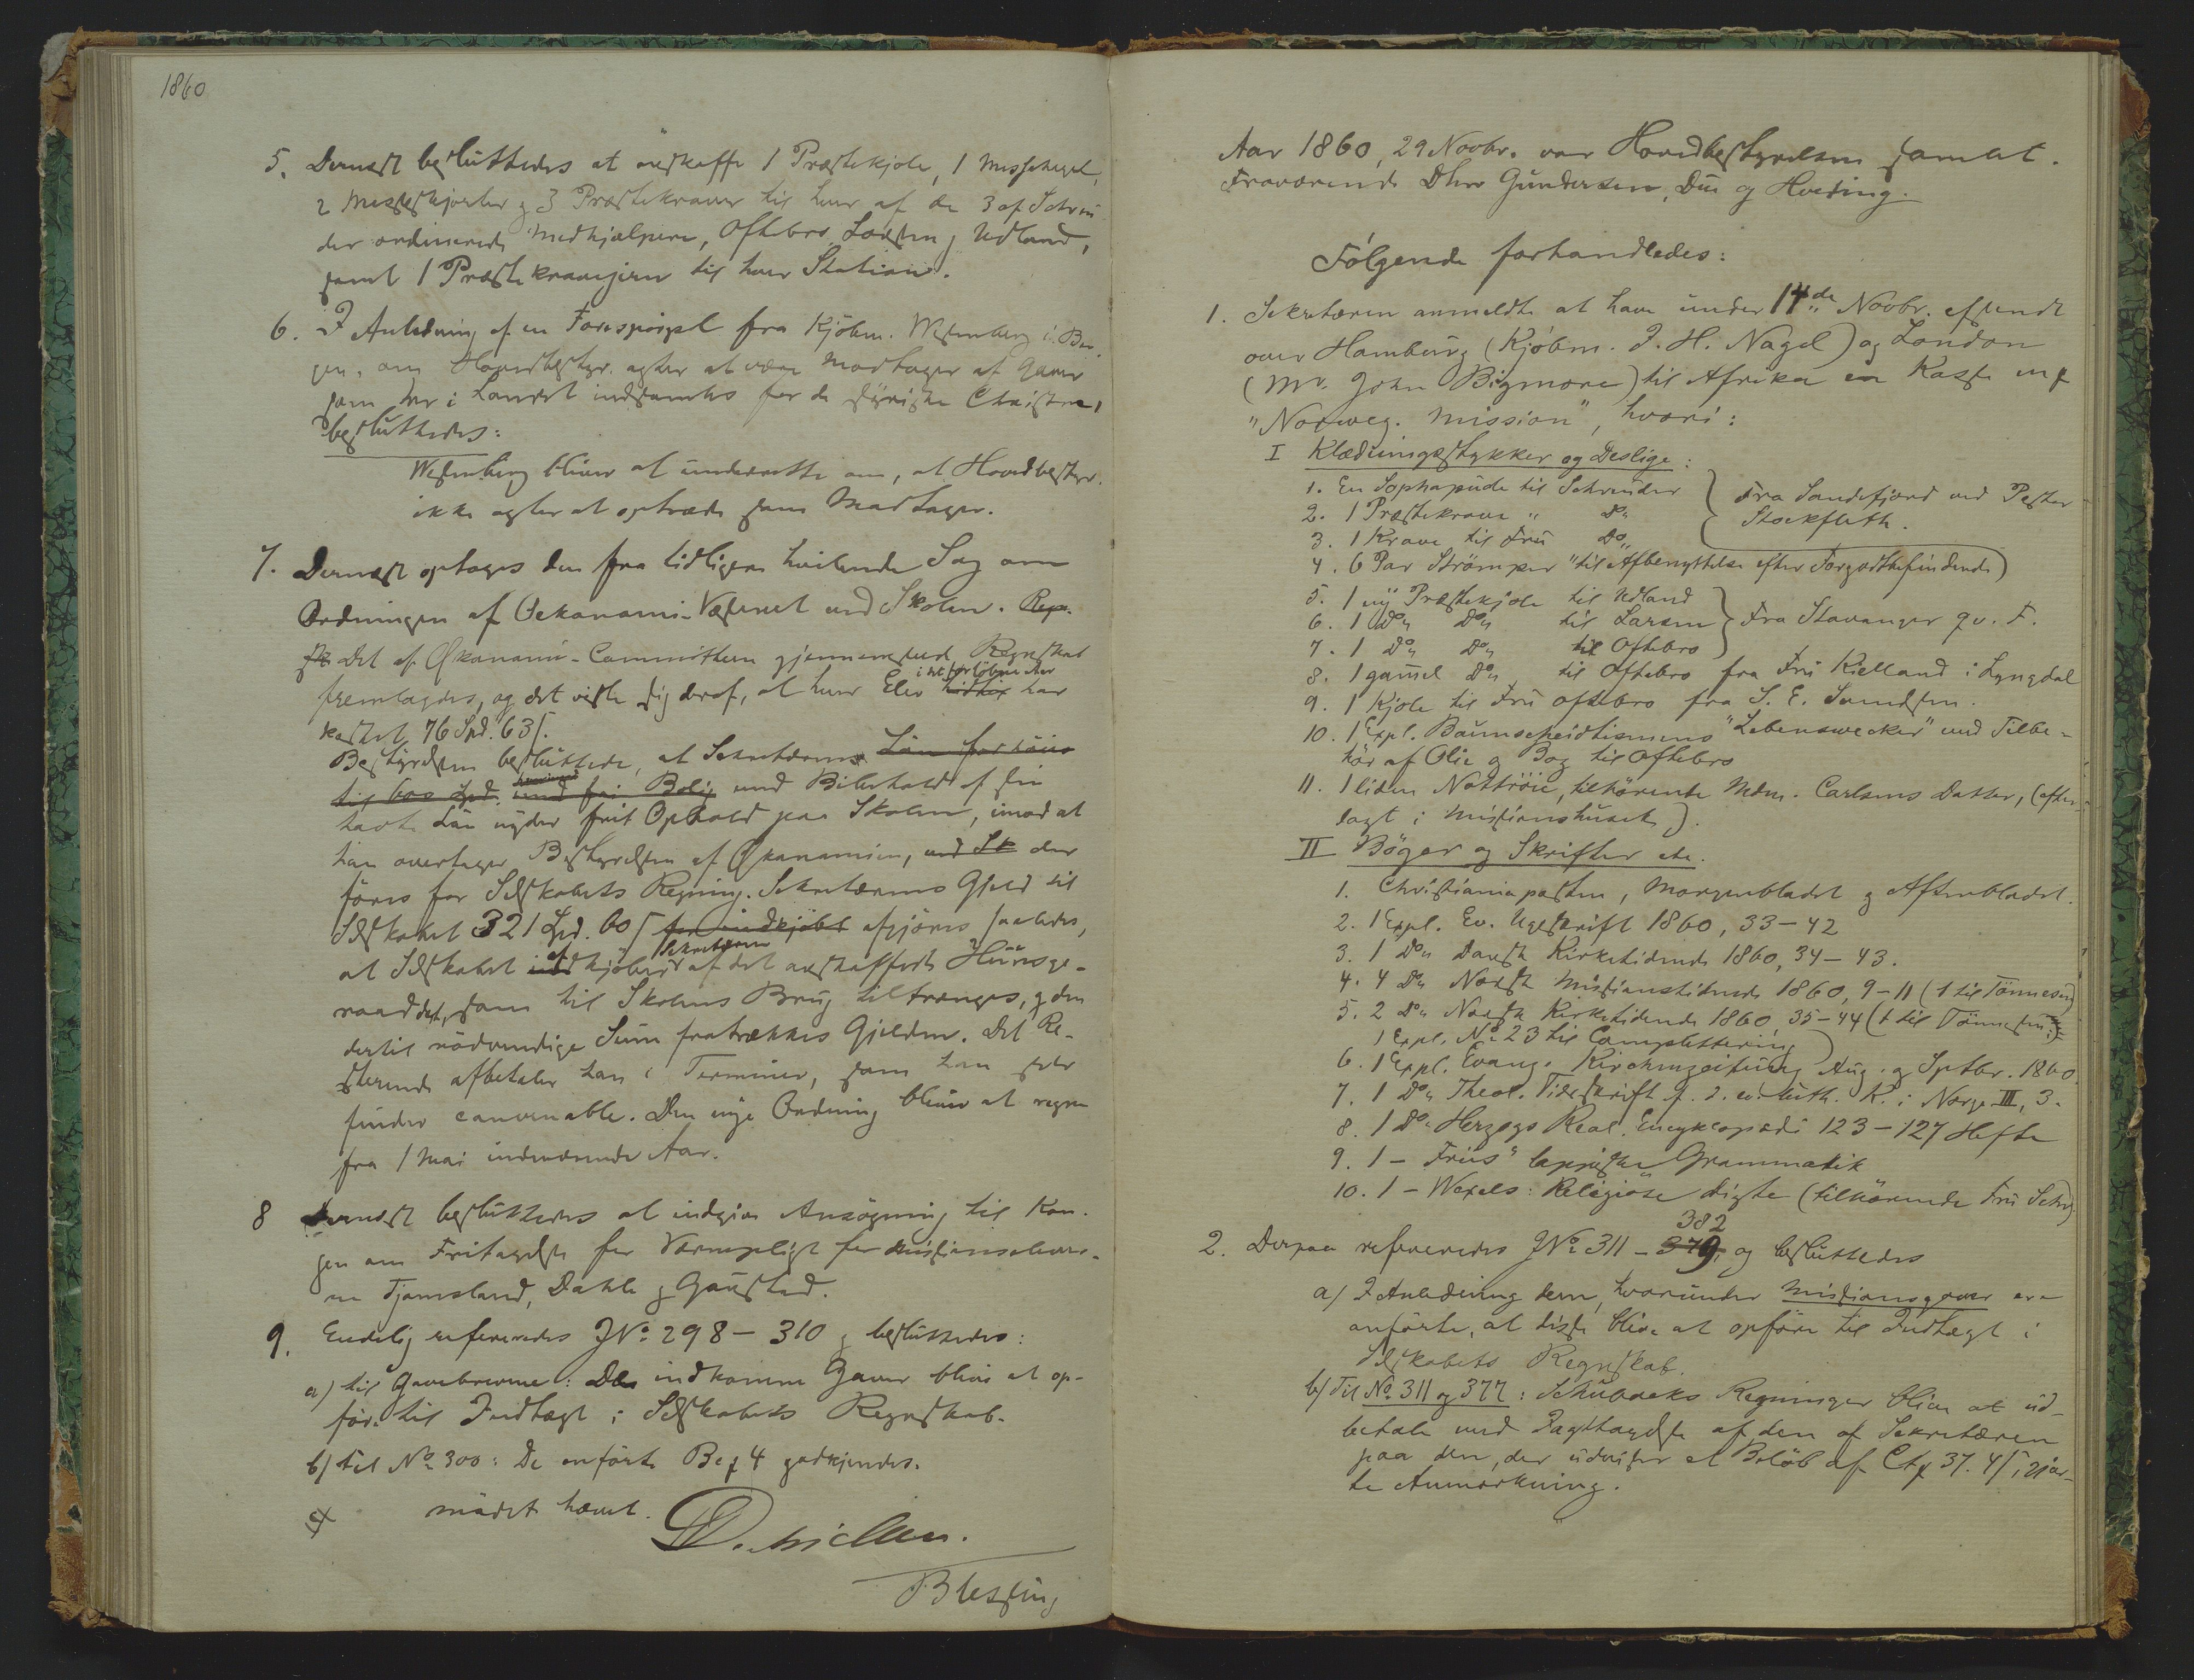 1860
5. Dernæst besluttedes at anskaffe 1 Præstekjole, 1 Messehagel,
2 Messeskjorter og 3 Præstekraver til hver af de 3 af Schreu-
der ordinerede Medhjælpere, Oftebro, Larsen og Udland,
samt 1 Præstekravejern til hver Station.
6. I Anledning af en Forespørgsel fra Kjøbm. Wesenberg i Ber-
gen, om Hovedbestyr. agter at være Modtager af Gaver
som her i Landet indsamles for de syriske Christne,
besluttedes:
Wesenberg bliver at underrette om, at Hovedbestyr.
ikke agter at optræde som Modtager.
7. Dernæst optoges den fra tidligere hvilende Sag om
Ordningen af Oekonomi-Væsenet ved Skolen. Reg-
sk Det af Økonomi-Committeen gjennemseede Regnskab
fremlagdes, og det viste sig deraf, at hver Elev i det forløbne Aar hidtil har
kostet 76 Spd. 63 ß.
Bestyrelsen besluttede, at Sekretæren Løn forhøies
til 600 Spd. med fri Bolig ved Bibehold af sin
havte Løn nyder frit Ophold paa Skolen, imod at
han overtager Bestyrelsen af Økonomien, ved Sk der
føres for Selskabets Regning. Sekretærens Gjeld til
Selskabet 321 Spd. 60 ß for indkjøbet afgjøres saaledes,
at Selskabet indkjøber af Sekretæren af det anskaffede Huusge-
raad det, som til Skolens Brug tiltrænges, og den
dertil nødvendige Sum fratrækkes Gjelden. Det Re-
sterende afbetaler han i Terminer, som han selv
finder convenable. Den nye Ordning bliver at regne
fra 1 Mai indeværende Aar.
8 Dernæst besluttedes at indgive Ansøgning til Kon-
gen om Fritagelse for Værnepligt for Missionselever-
ne Tjomsland, Dahle og Gaustad.
9. Endelig refereredes J№ 298 – 310 og besluttedes:
a) til Gavebrevene: De indkomne Gaver blive at op-
føre til Indtægt i Selskabets Regnskab.
b) til № 300: De anførte Beg 4 godkjendes.
Mødet hævet.
Blessing
Aar 1860, 29 Novbr. var Hovedbestyrelsen samlet.
Fraværende DHrr Gundersen, Due og Hvoding.
Følgende forhandledes:
1. Sekretæren anmeldte at have under 14de Novbr. afsendt
over Hamburg (Kjøbm. J. H. Nagel) og London
(Mr. John Bigmore) til Afrika en Kasse mrk
"Norweg. Mission", hvori:
I Klædningsstykker og Deslige:
1. En Sophapude til Schreuder
2. 1 Præstekrave " Do "
3. 1 Krave til Fru Do "
Fra Sandefjord ved Pastor
Stockfleth.
4. 6 Par Strömper "til Afbenyttelse efter Forgodtbefindende)
5. 1 ny Præstekjole til Udland
6. 1 Do " Do " til Larsen
7. 1 Do " Do " til Oftebro
Fra Stavanger qv. F.
8. 1 gammel Do " til Oftebro fra Fru Kielland i Lyngdal
9. 1 Kjole til Fru Oftebro fra S. E. Svendsen.
10. 1 Expl. Baunscheidtismens "Lebenswecker" med Tilbe-
hör af Olie og Bog til Oftebro
11. 1 liden Nattröie, tilhörende Mdm. Carlsens Datter, (efter-
lagt i Missionshuset).
II Böger og Skrifter etc.
1. Christianiaposten, Morgenbladet og Aftenbladet.
2. 1 Expl. Ev. Ugeskrift 1860, 33 – 42
3. 1 Do " Dansk Kirketidende 1860, 34 – 43.
4. 4 Do " Norsk Missionstidende 1860, 9 – 11 (1 til Tönnesen)
5. 2 Do " Norsk Kirketidende 1860, 35 – 44 (1 til Tönnesen;
1 Expl. № 23 til Complettering)
6. 1 Expl. Evang. Kirchenzeitung Aug. og Sptbr. 1860.
7. 1 Do " Theol. Tidsskrift f. d. ev. luth. K. i Norge III, 3.
8. 1 Do " Herzogs Real. Encyklopædi 123 – 127 Hefte
9. 1 – Friis' lappiske Grammatik
10. 1 – Wexels: Religiöse Digte (tilhörende Fru Schr.)
2. Derpaa refereredes J№ 311 – 379, 382 og besluttedes
a) I Anledning dem, hvorunder Missionsgaver ere
anførte, at disse blive at opføre til Indtægt i
Selskabets Regnskab.
b) Til № 311 og 377: Schubarths Regninger blive at ud-
betale med Iagttagelse af den af Sekretæren
paa den, der udviser et Beløb af 37. 4 ß, gjor-
te Anmærkning.